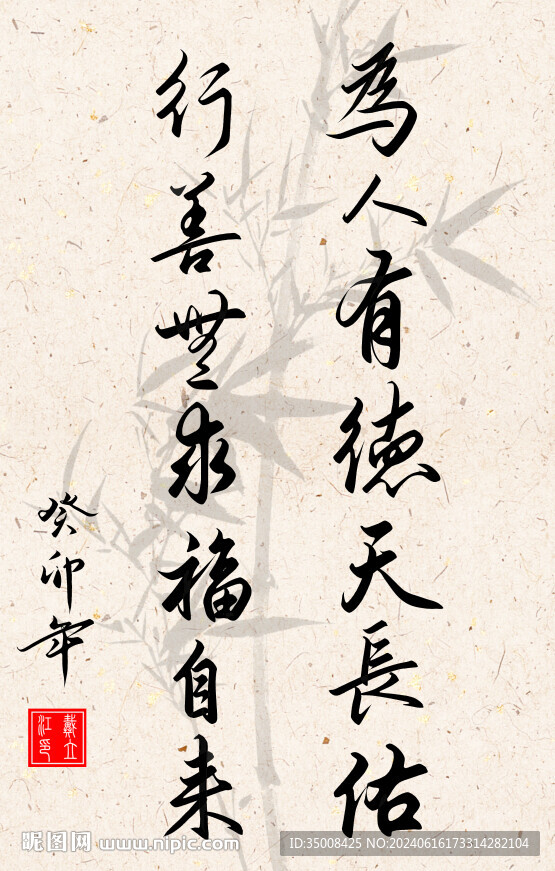 為人有德天長佑
行善無求福自来
癸卯年
戴立江印
昵图网 www.nipic.com
ID:35008425 NO:20240616173314282104